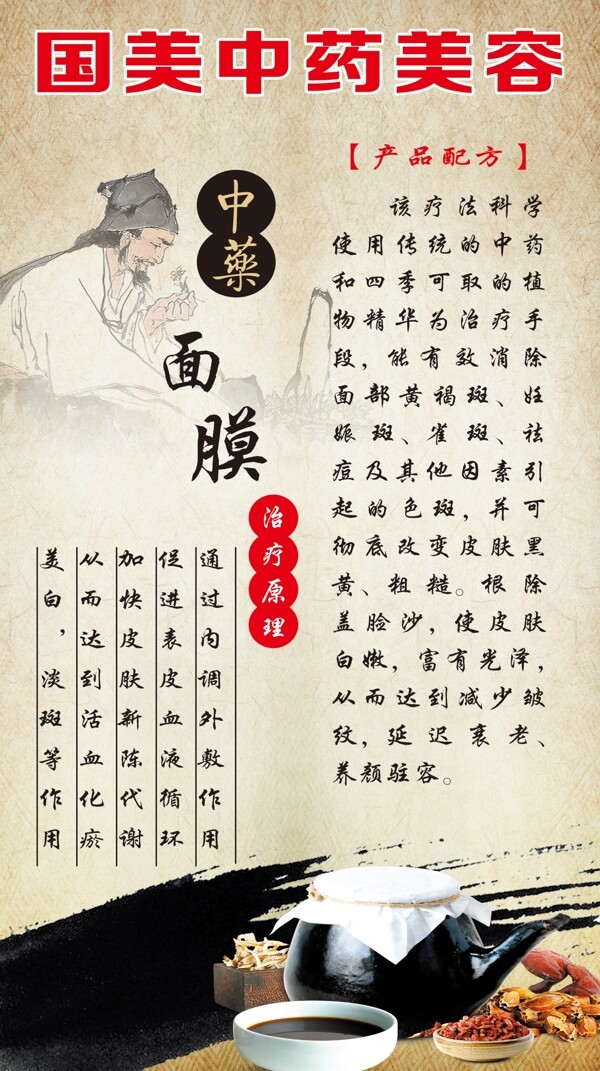 国美中药美容
【产品配方】
该疗法科学
使用传统的中药
和四季可取的植
物精华为治疗手
段，能有效消除
面部黄褐斑、妊
娠斑、雀斑、祛
痘及其他因素引
起的色斑，并可
彻底改变皮肤黑
黄、粗糙。根除
盖脸沙，使皮肤
白嫩，富有光泽，
从而达到减少皱
纹，延迟衰老、
养颜驻容。
中藥
面膜
治疗原理
通过内调外敷作用
促进表皮血液循环
加快皮肤新陈代谢
从而达到活血化瘀
美白，淡斑等作用